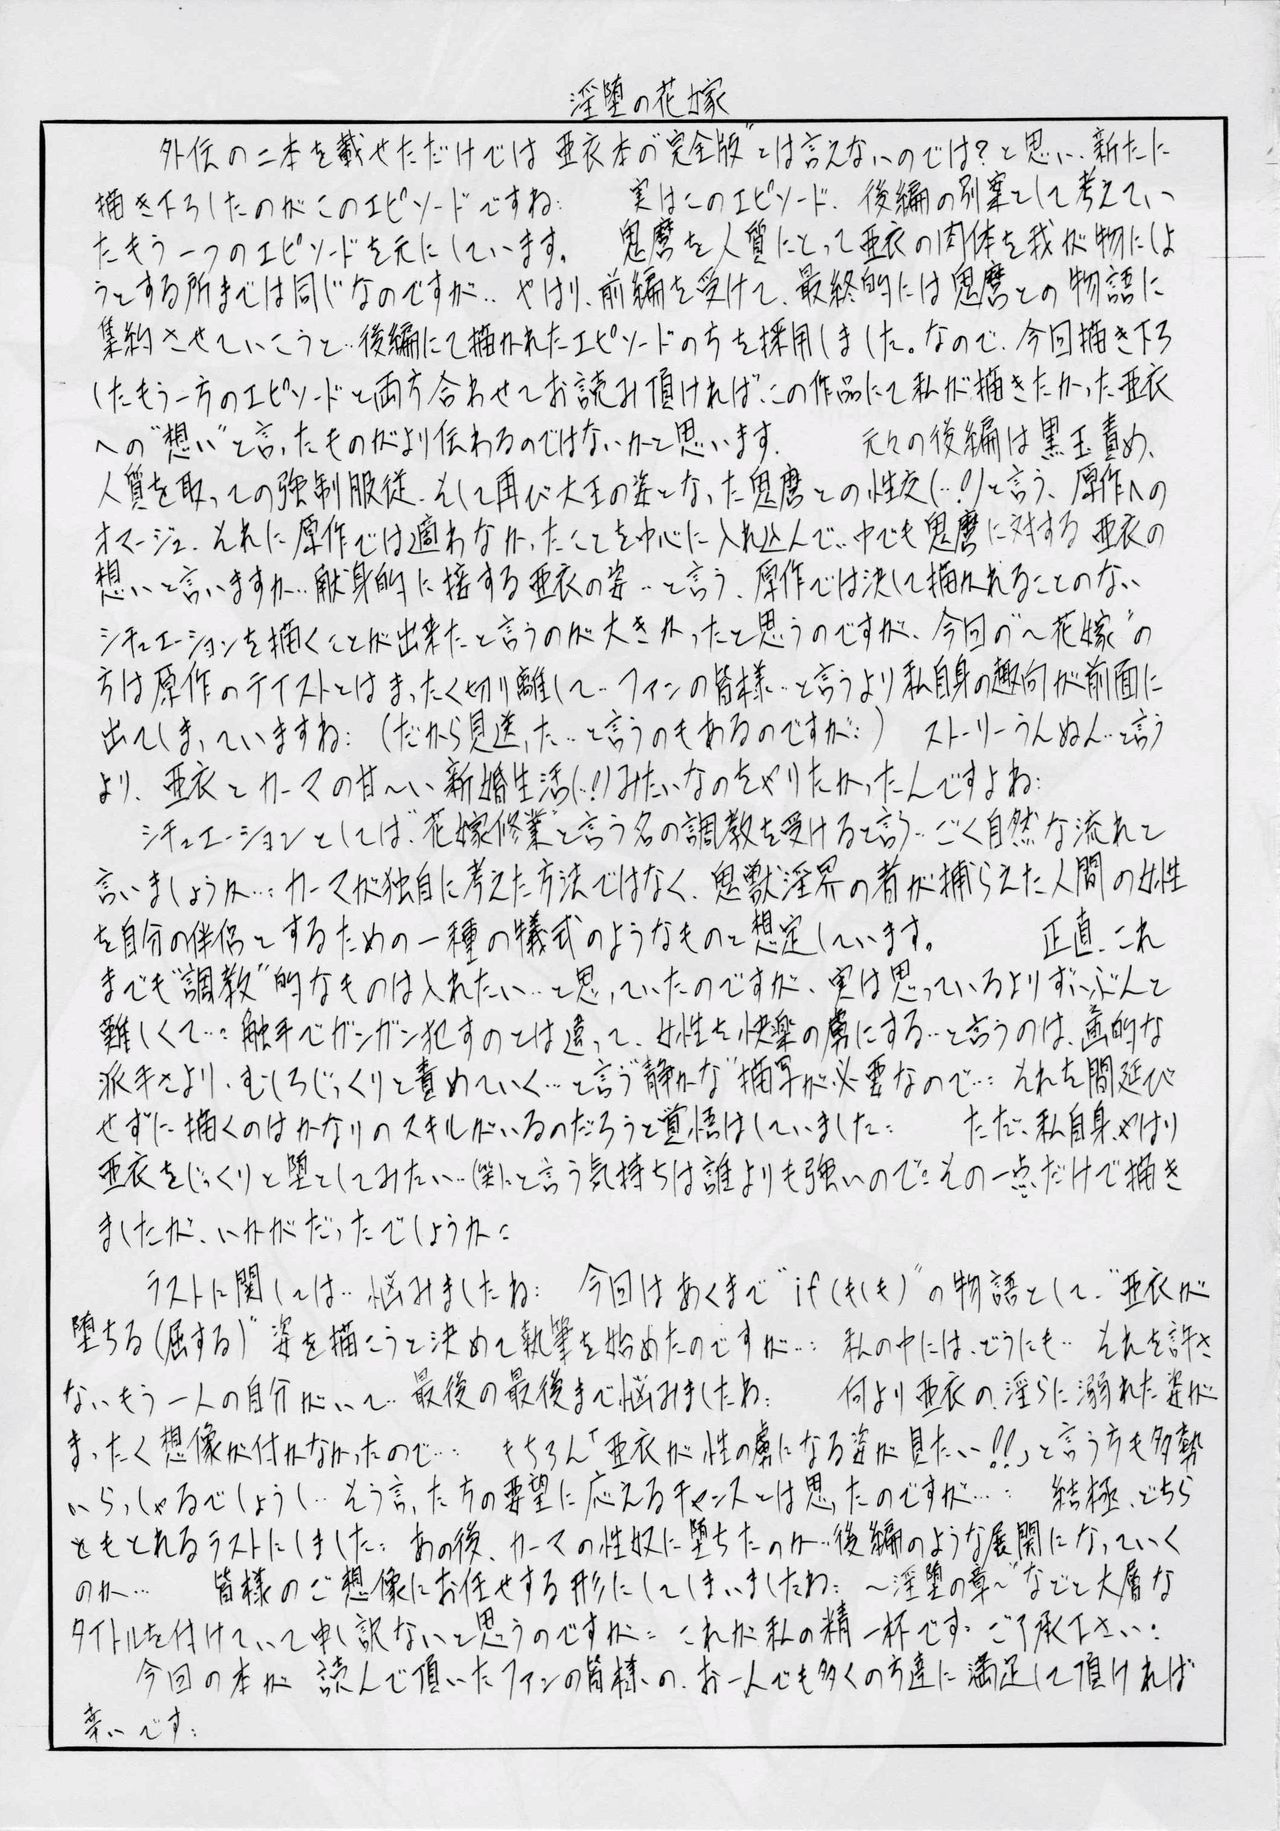 淫堕の花嫁
外伝の二本を載せただけでは亜衣本の"完全版"とは言えないのでは?と思い、新たに
描き下ろしたのがこのエピソードですね… 実はこのエピソード、後編の別案として考えてい
たもう一つのエピソードを元にしています。 鬼麿を人質にとって亜衣の肉体を我が物にしよ
うとする所までは同じなのですが… やはり、前編を受けて、最終的には鬼麿との物語に
集約させていこうと…後編にて描かれたエピソードの方を採用しました。なので、今回描き下ろ
したもう一方のエピソードと両方合わせてお読み頂ければ、この作品にて私が描きたかった亜衣
への"想い"と言ったものがより伝わるのではないかと思います。 元々の後編は黒玉責め、
人質を取っての強制服従、そして再び大王の姿となった鬼麿との性交(…!)と言う、原作への
オマージュ、それに原作では適わなかったことを中心に入れ込んで…中でも鬼麿に対する亜衣の
想いと言いますか…献身的に接する亜衣の姿…と言う、原作では決して描かれることのない
シチュエーションを描くことが出来たと言うのが大きかったと思うのですが、今回の"~花嫁"の
方は原作のテイストとはまったく切り離して…ファンの皆様…と言うより私自身の趣向が前面に
出てしまっていますね… (だから見送った…と言うのもあるのですが…) ストーリーうんぬん…と言う
より、亜衣とカーマの甘~い新婚生活(…!)みたいなのをやりたかったんですよね…
シチュエーションとしては"花嫁修業"と言う名の調教を受けると言う…ごく自然な流れと
言いましょうか…カーマが独自に考えた方法ではなく、鬼獣淫界の者が捕らえた人間の女性
を自分の伴侶とするための一種の儀式のようなものと想定しています。 正直、これ
までも"調教"的なものは入れたい…と思っていたのですが、実は思っているよりずいぶんと
難しくて…触手でガンガン犯すのとは違って、女性を快楽の虜にする…と言うのは、画的な
派手さより、むしろじっくりと責めていく…と言う"静かな"描写が必要なので…それを間延び
せずに描くのはかなりのスキルがいるのだろうと覚悟はしていました… ただ、私自身、やはり
亜衣をじっくりと堕としてみたい…(笑)と言う気持ちは誰よりも強いので…その一点だけで描き
ましたが、いかがだったでしょうか…
ラストに関しては…悩みましたね… 今回はあくまで"if(もしも)"の物語として、"亜衣が
堕ちる(屈する)"姿を描こうと決めて執筆を始めたのですが… 私の中には、どうにも…それを許さ
ないもう一人の自分がいて…最後の最後まで悩みましたね… 何より亜衣の淫らに溺れた姿が
まったく想像が付かなかったので… もちろん「亜衣が性の虜になる姿が見たい!!」と言う方も多勢
いらっしゃるでしょうし…そう言った方の要望に応えるチャンスとは思ったのですが… 結極、どちら
ともとれるラストにしました… あの後、カーマの性奴に堕ちたのか…後編のような展開になっていく
のか… 皆様のご想像にお任せする形にしてしまいましたね… ~淫堕の章~"などと大層な
タイトルを付けていて申し訳ないと思うのですが… これが私の精一杯です…ご了承下さい…
今回の本が 読んで頂いたファンの皆様の、お一人でも多くの方達に満足して頂ければ
幸いです…